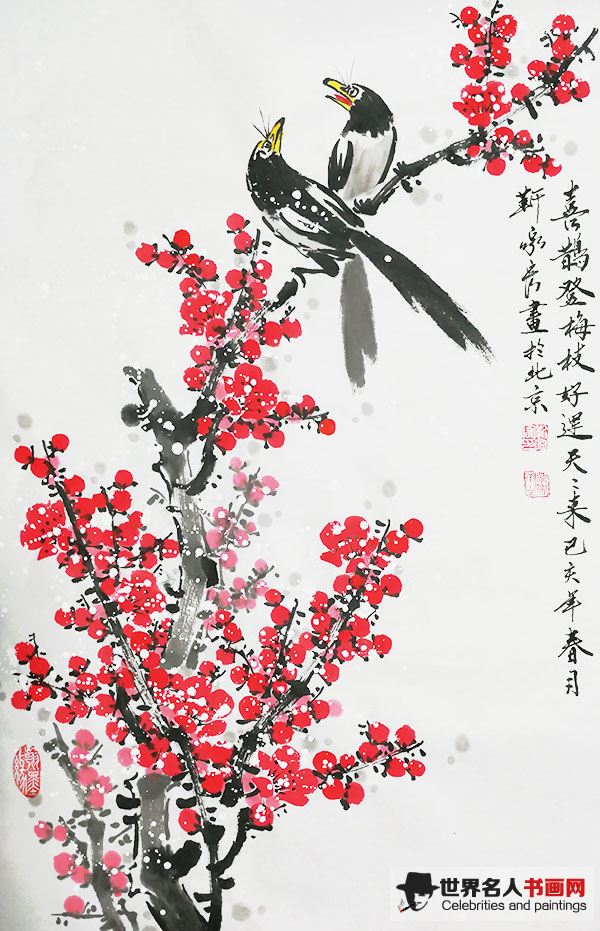 喜鹊登梅枝好运天々来己亥年春月
靳家良畫於北京
世界名人书画网
Celebrities and paintings